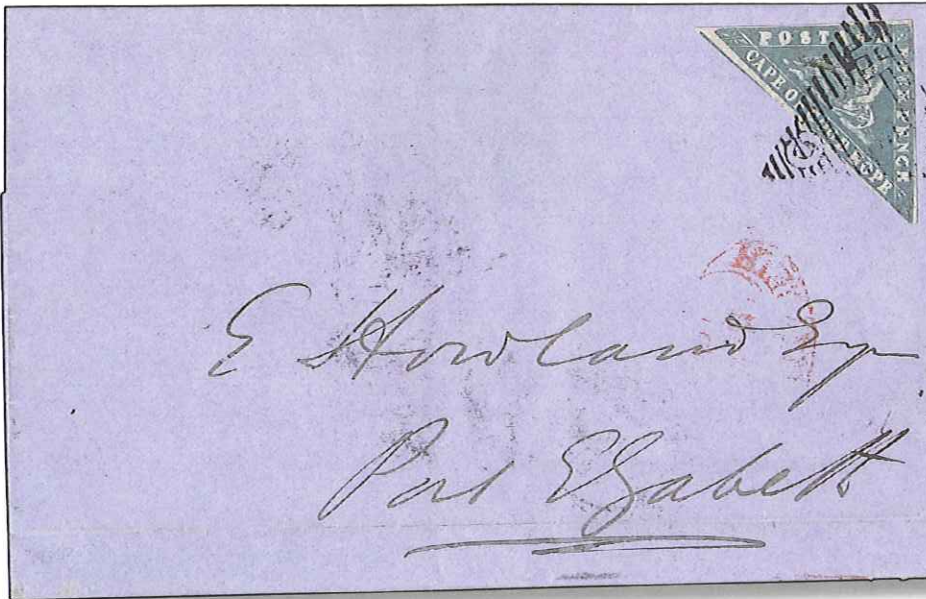 POSTAGE
CAPE OF GOOD HOPE
PENCE
E Howland Esqr
Port Elizabeth